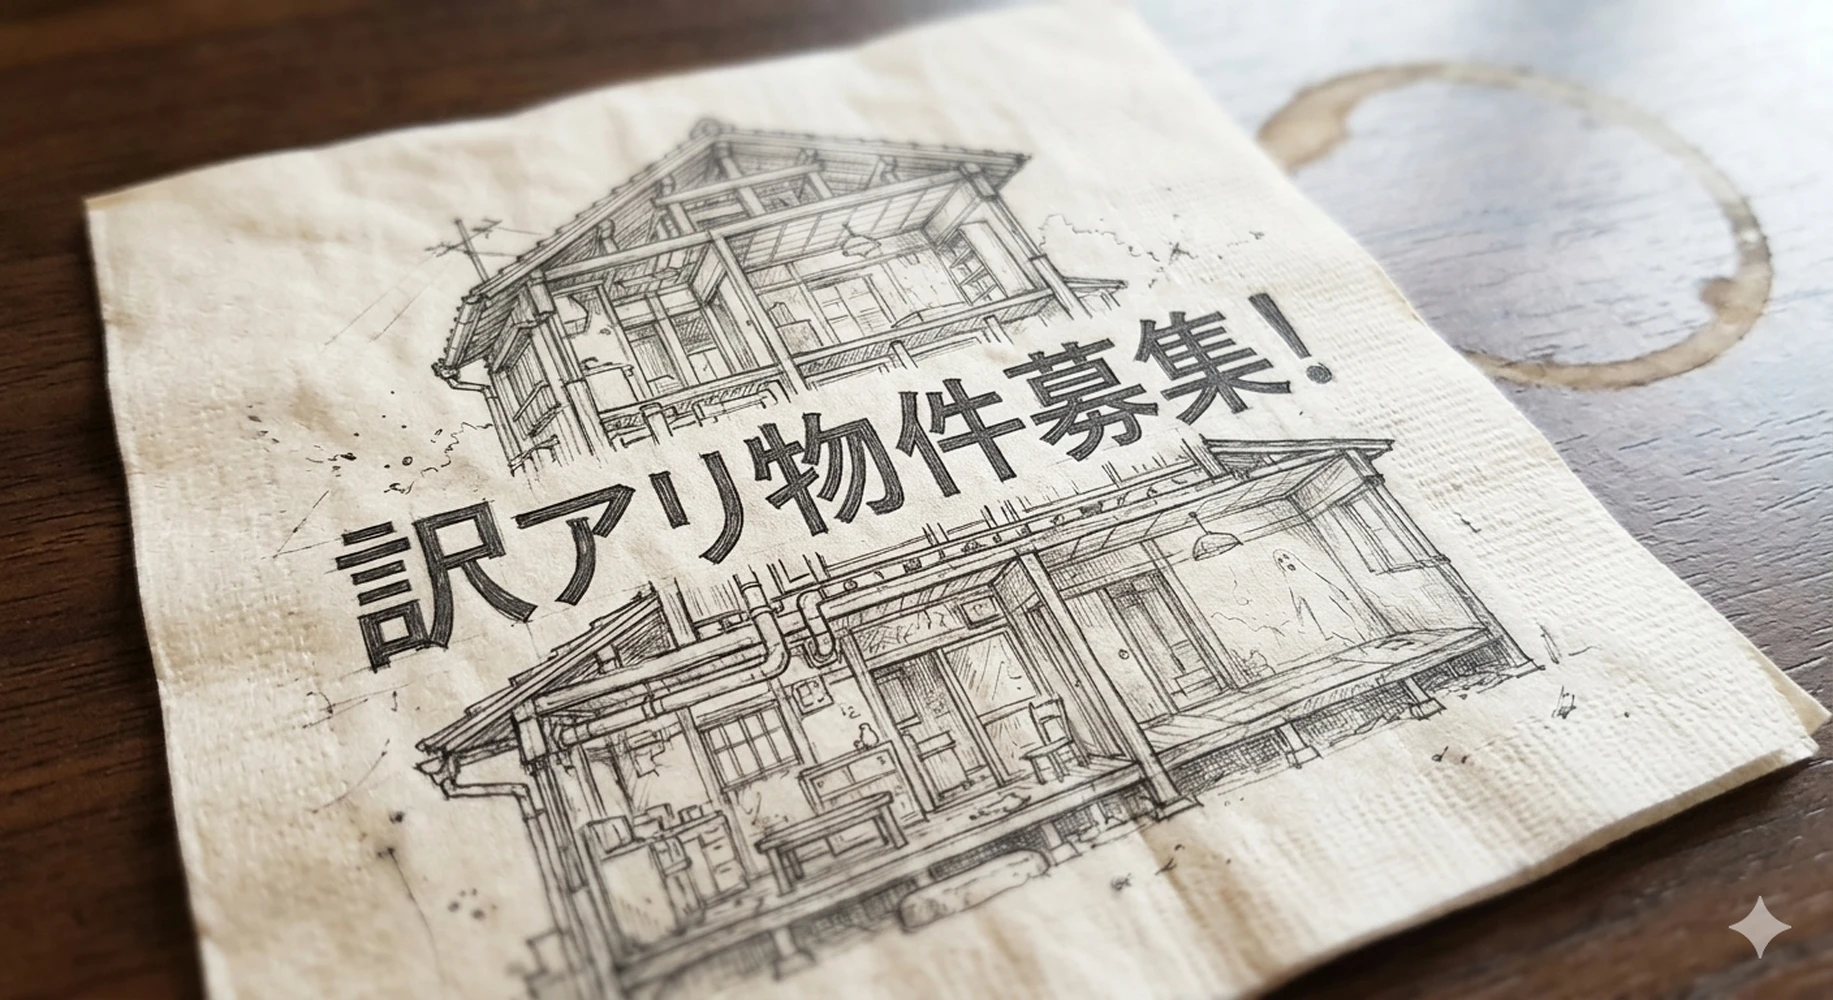 訳アリ物件募集!